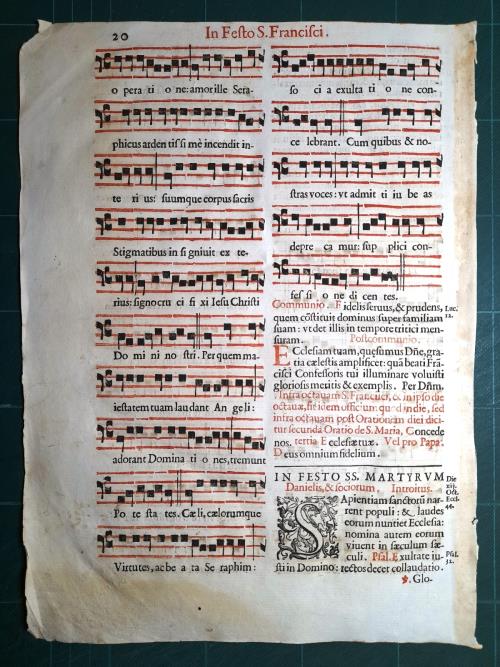 20
In Festo S. Francisci.
o pera ti o ne: amor ille Sera-
phicus arden tissi mè incendit in-
te ri us: suumque corpus sacris
Stigmatibus in si gniuit ex te-
rius: signo cru ci fi xi Iesu Christi
Do mi ni no stri. Per quem ma-
iestatem tuam laudant An ge li:
adorant Domina ti o nes, tremunt
Po te sta tes. Cæli, cælorumque
Virtutes, ac be a ta Se raphim:
so ci a exulta ti o ne con-
ce lebrant. Cum quibus & no-
stras voces: vt admit ti iu be as
depre ca mur: sup plici con-
fes si o ne di cen tes.
Communio. Fidelis seruus, & prudens, Luc.
quem cõstituit dominus super familiam 12.
suam: vt det illis in tempore tritici men-
suram. Postcommunio.
Ecclesiam tuam, quęsumus Dñe, gra-
tia cælestis amplificet: quã beati Frã-
cisci Confessoris tui illuminare voluisti
gloriosis meritis & exemplis. Per Dñm.
Infra octauam S. Francisci, & in ipso die
octauæ, fit idem officium quod in die, sed
infra octauam post Orationem diei dici-
tur secunda Oratio de S. Maria, Concede
nos. tertia Ecclesiæ tuæ. Vel pro Papa.
Deus omnium fidelium.
IN FESTO SS. MARTYRVM Die
Danielis, & sociorum. Introitus. xiij. Oct.
Sapientiam sanctorũ nar- Eccl.
rent populi: & laudes 44.
eorum nuntiet Ecclesia:
nomina autem eorum
viuent in sæculum sæ-
culi. Psal. Exultate iu- Psal.
sti in Domino: rectos decet collaudatio. 32.
℣. Glo-